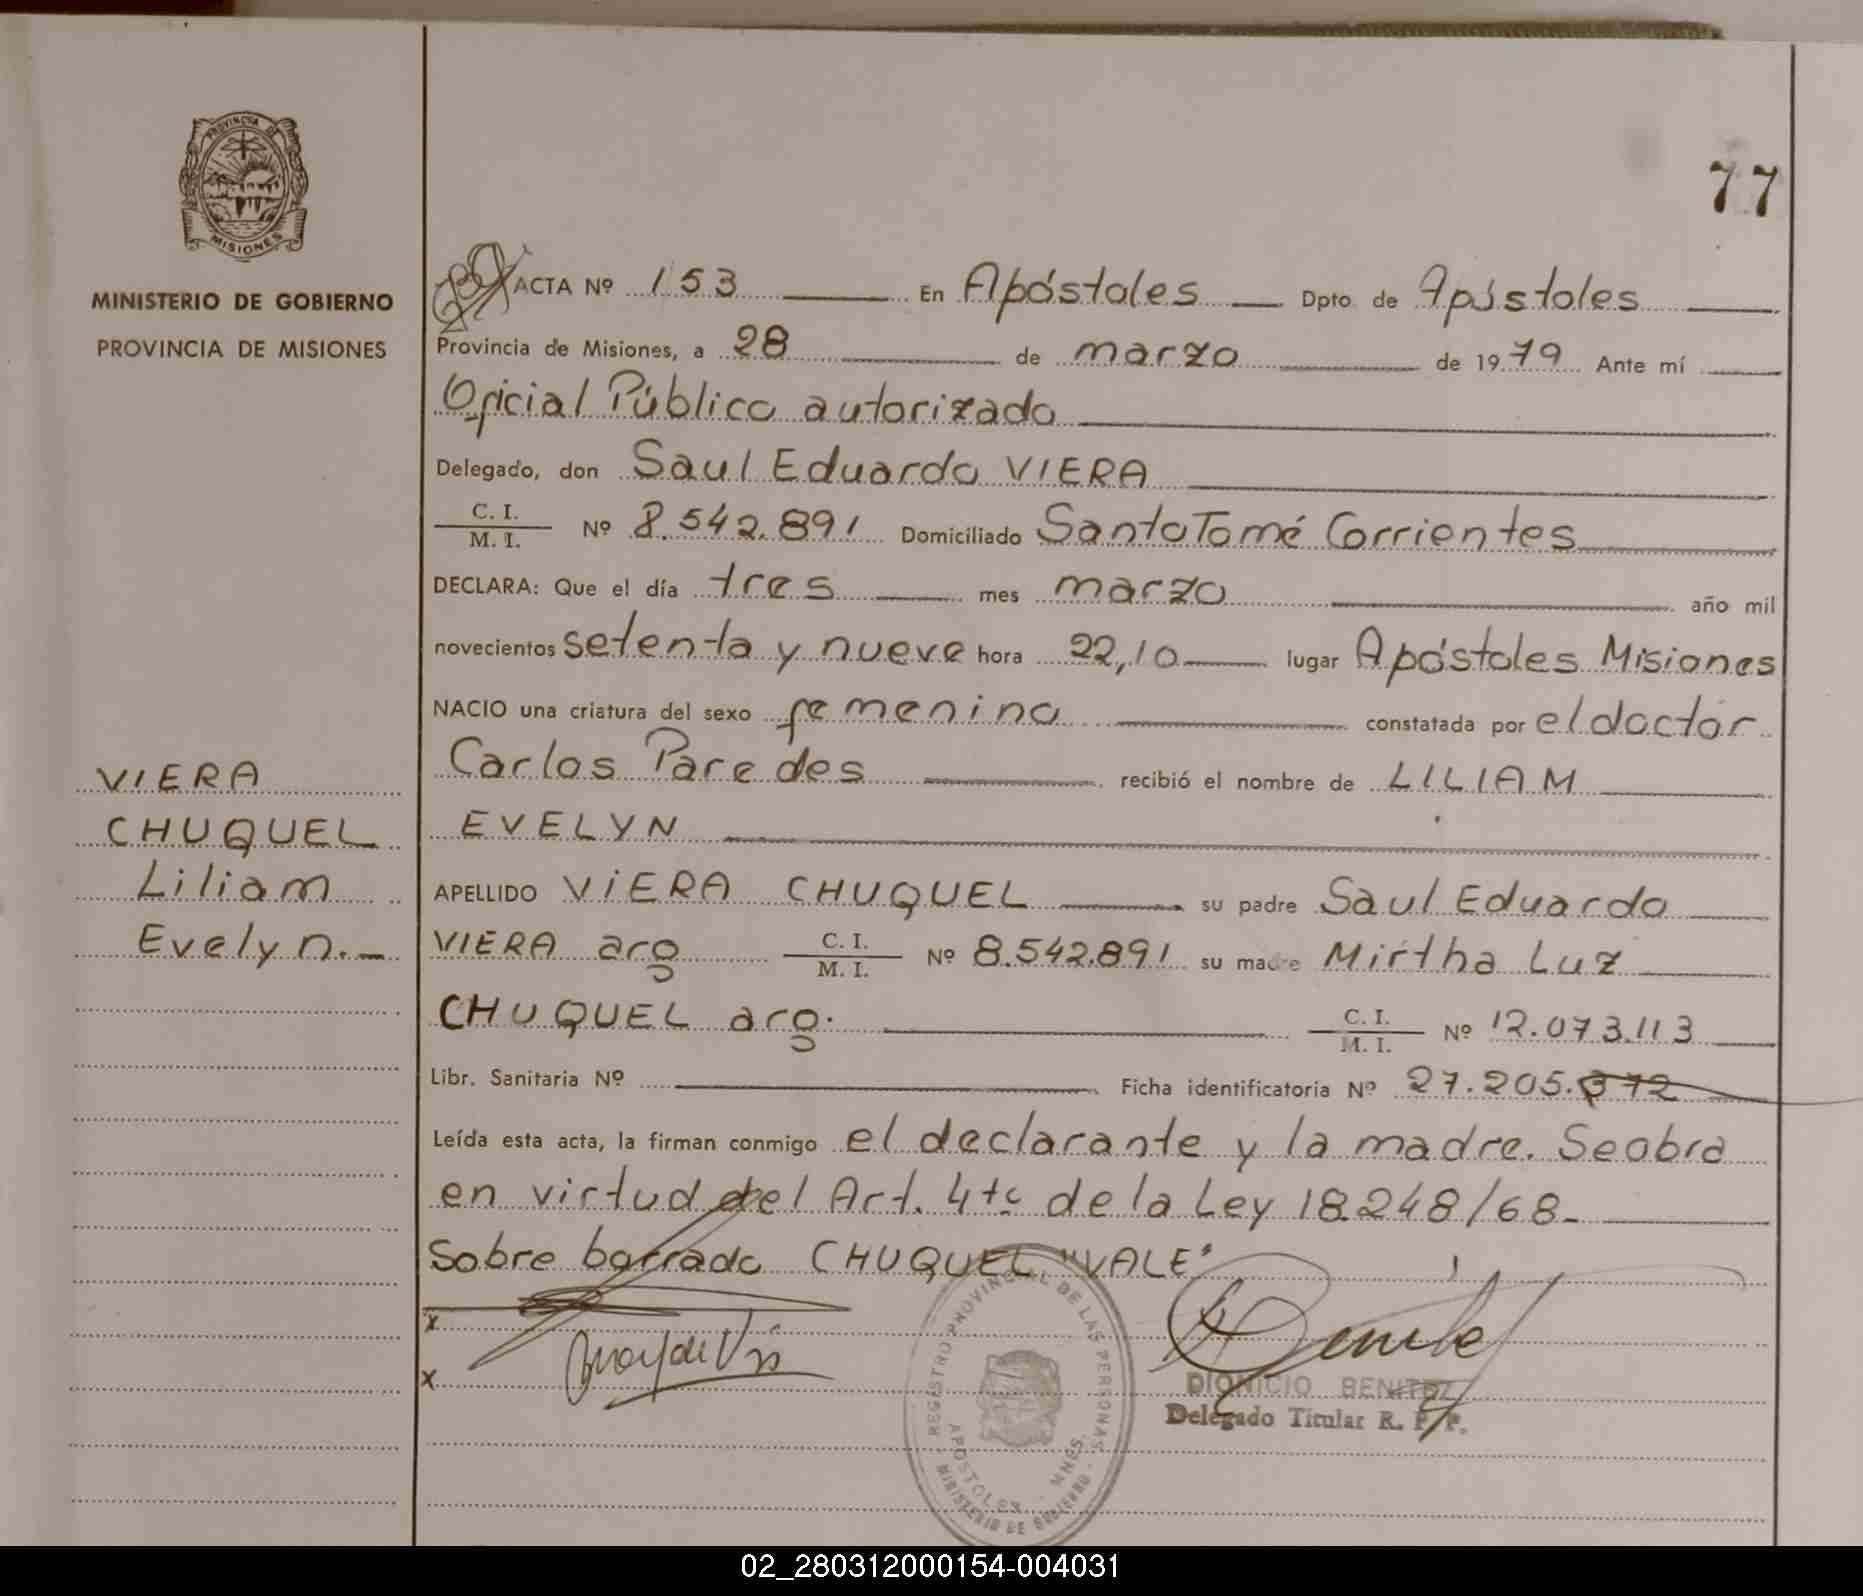 PROVINCIA DE
MISIONES
MINISTERIO DE GOBIERNO
PROVINCIA DE MISIONES
VIERA
CHUQUEL
Liliam
Evelyn.-
77
ACTA Nº 153 En Apóstoles Dpto de Apóstoles
Provincia de Misiones, a 28 de marzo de 1979 Ante mí
Oficial Público autorizado
Delegado, don Saul Eduardo VIERA
C. I.
M. I. Nº 8.542.891 Domiciliado Santo Tomé Corrientes
DECLARA: Que el día tres mes marzo año mil
novecientos setenta y nueve hora 22,10 lugar Apóstoles Misiones
NACIO una criatura del sexo femenino constatada por el doctor
Carlos Paredes recibió el nombre de LILIAM
EVELYN
APELLIDO VIERA CHUQUEL su padre Saul Eduardo
VIERA arg C. I. M. I. Nº 8.542.891 su madre Mirtha Luz
CHUQUEL arg. C. I. M. I. Nº 12.073.113
Libr. Sanitaria Nº Ficha identificatoria Nº 27.205.372
Leída esta acta, la firman conmigo el declarante y la madre. Se obra
en virtud del Art. 4to de la Ley 18.248/68-
Sobre borrado CHUQUEL "VALE"
x
x
REGISTRO PROVINCIAL DE LAS PERSONAS
APOSTOLES - MNES.
MINISTERIO DE GOBIERNO
DIONICIO BENITEZ
Delegado Titular R. P. P.
02_280312000154-004031